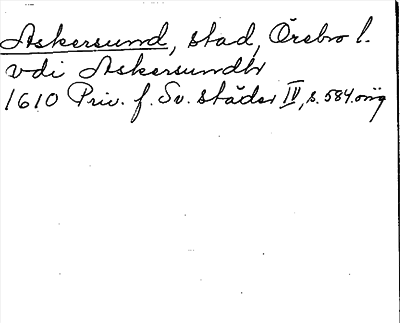 Askersund, stad, Örebro l.
vdi Askersundh
1610 Priv. f. Sv. städer IV, s. 584. orig